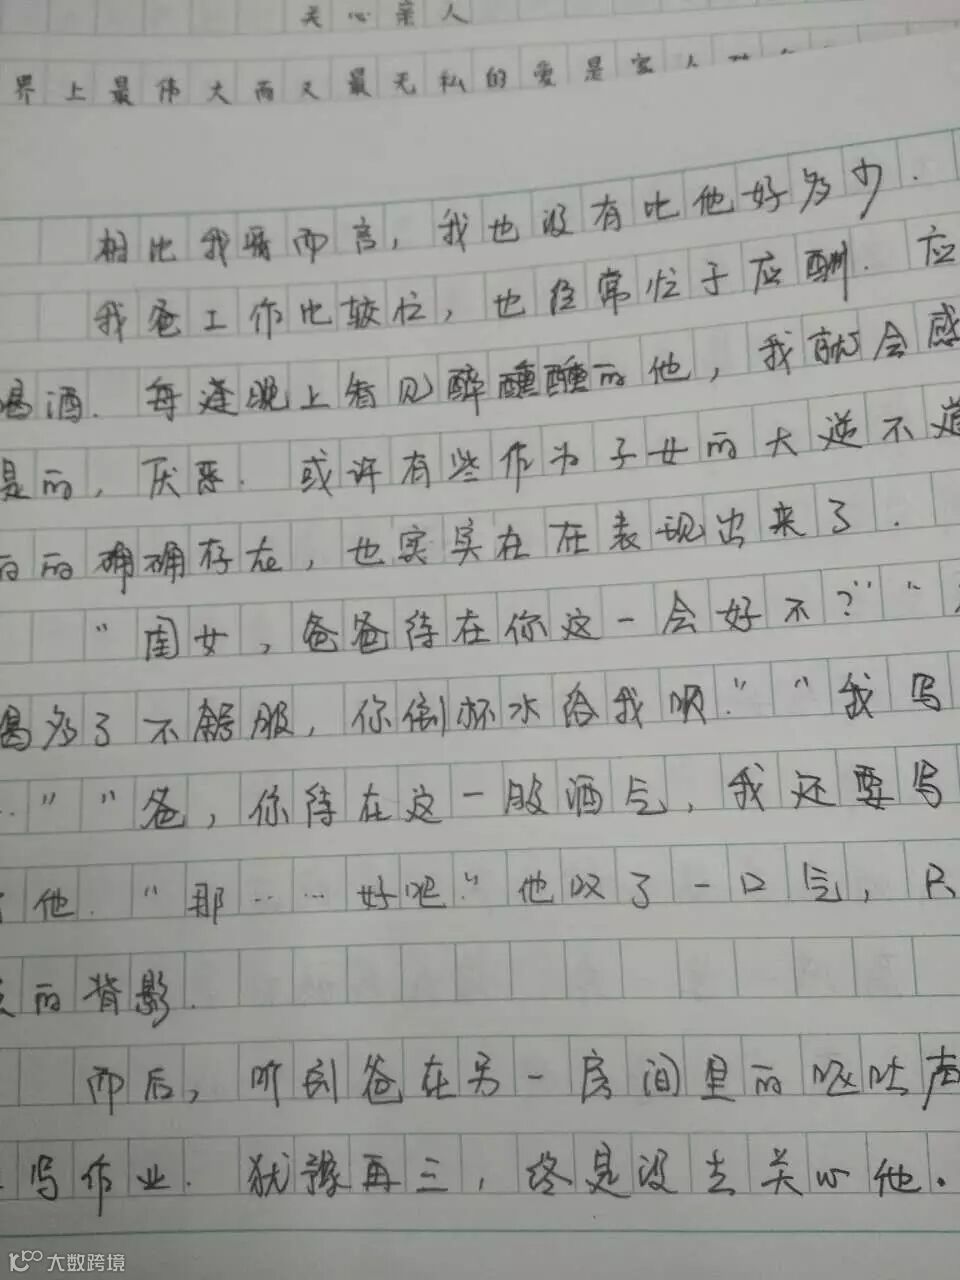 关心亲人
界上最伟大而又最无私的爱是家人
相比我哥而言，我也没有比他好多少.
我爸工作比较忙，也经常忙于应酬. 应
喝酒. 每逢晚上看见醉醺醺的他，我就会感
是的，厌恶. 或许有些作为子女的大逆不道
的的确确存在，也实实在在表现出来了.
“闺女，爸爸待在你这一会好不？”“
喝多了不舒服，你倒杯水给我呗.”“我写
”“爸，你待在这一股酒气，我还要写
他.“那……好吧.”他叹了一口气，只
的背影.
而后，听到爸在另一房间里的呕吐声
写作业. 犹豫再三，终是没去关心他.
大数跨境